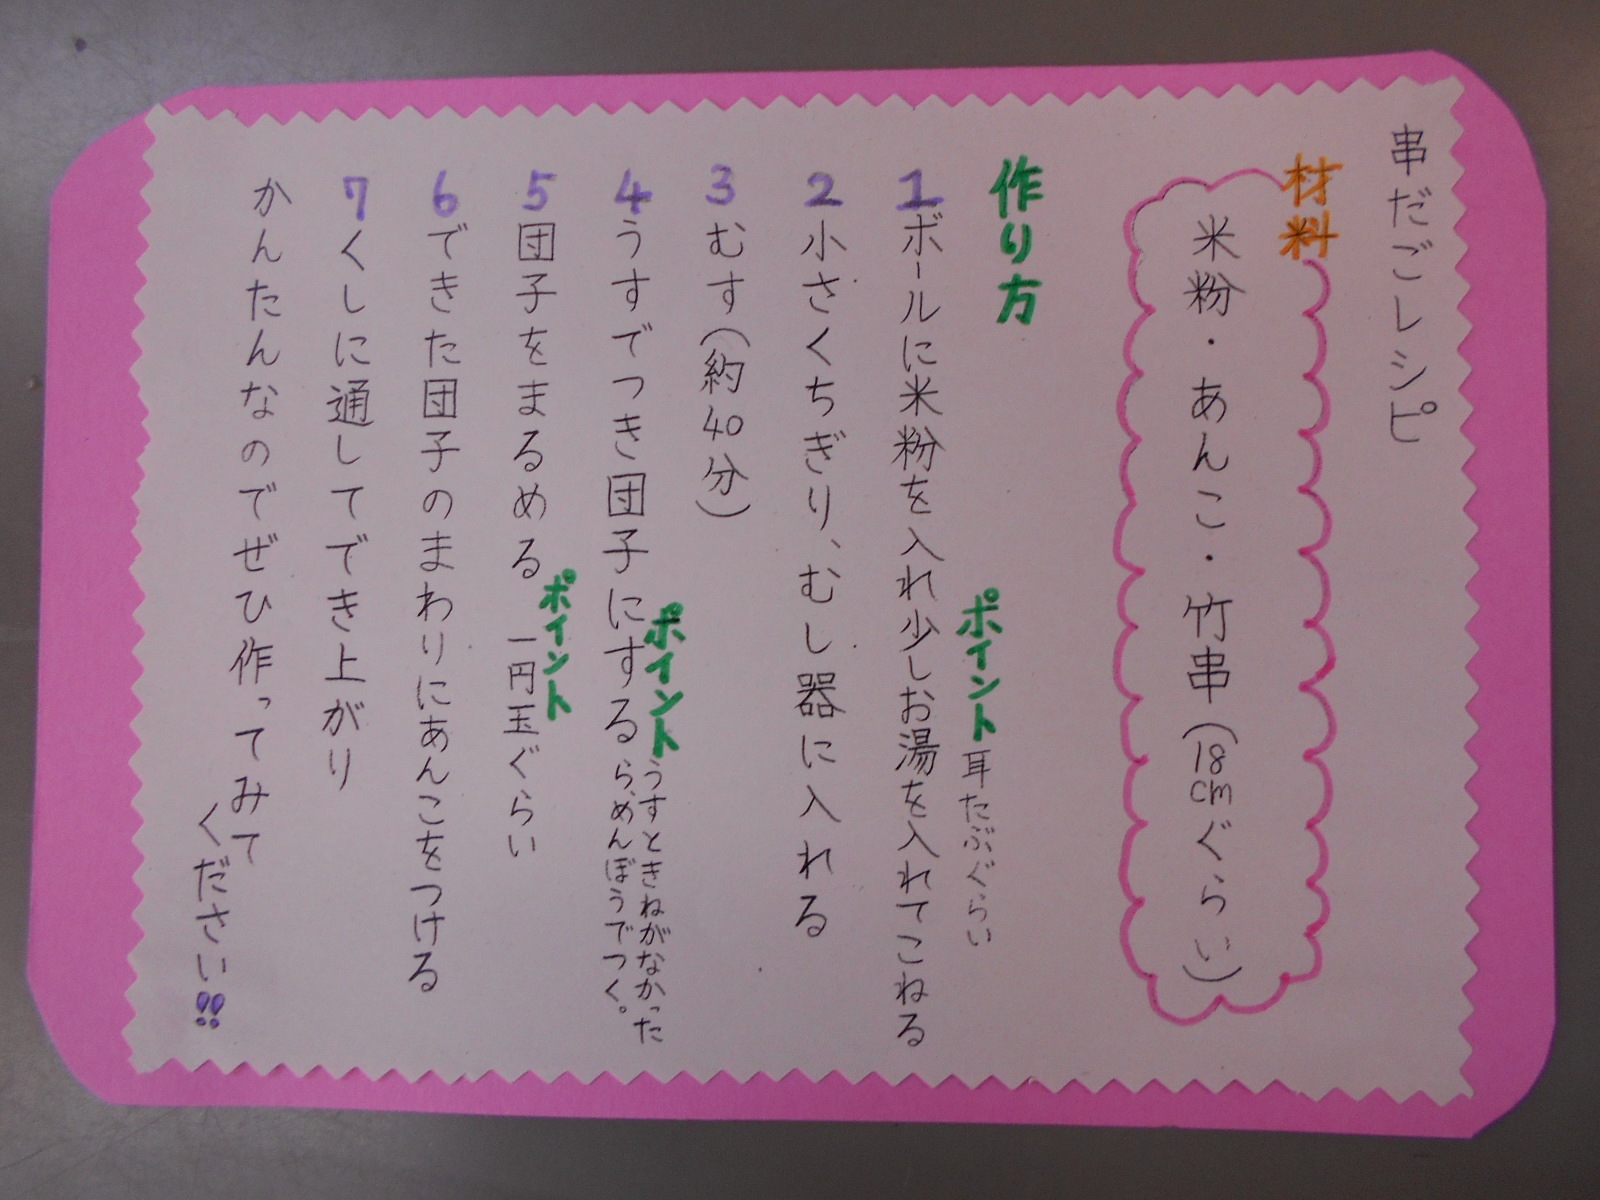 串だごレシピ
材料
米粉・あんこ・竹串(18cmぐらい)
作り方
1ボールに米粉を入れ少しお湯を入れてこねる
ポイント耳たぶぐらい
2小さくちぎり、むし器に入れる
3むす(約40分)
4うすでつき団子にする
ポイントうすときねがなかった
らめんぼうでつく。
5団子をまるめる
ポイント
一円玉ぐらい
6できた団子のまわりにあんこをつける
7くしに通してでき上がり
かんたんなのでぜひ作ってみて
ください!!